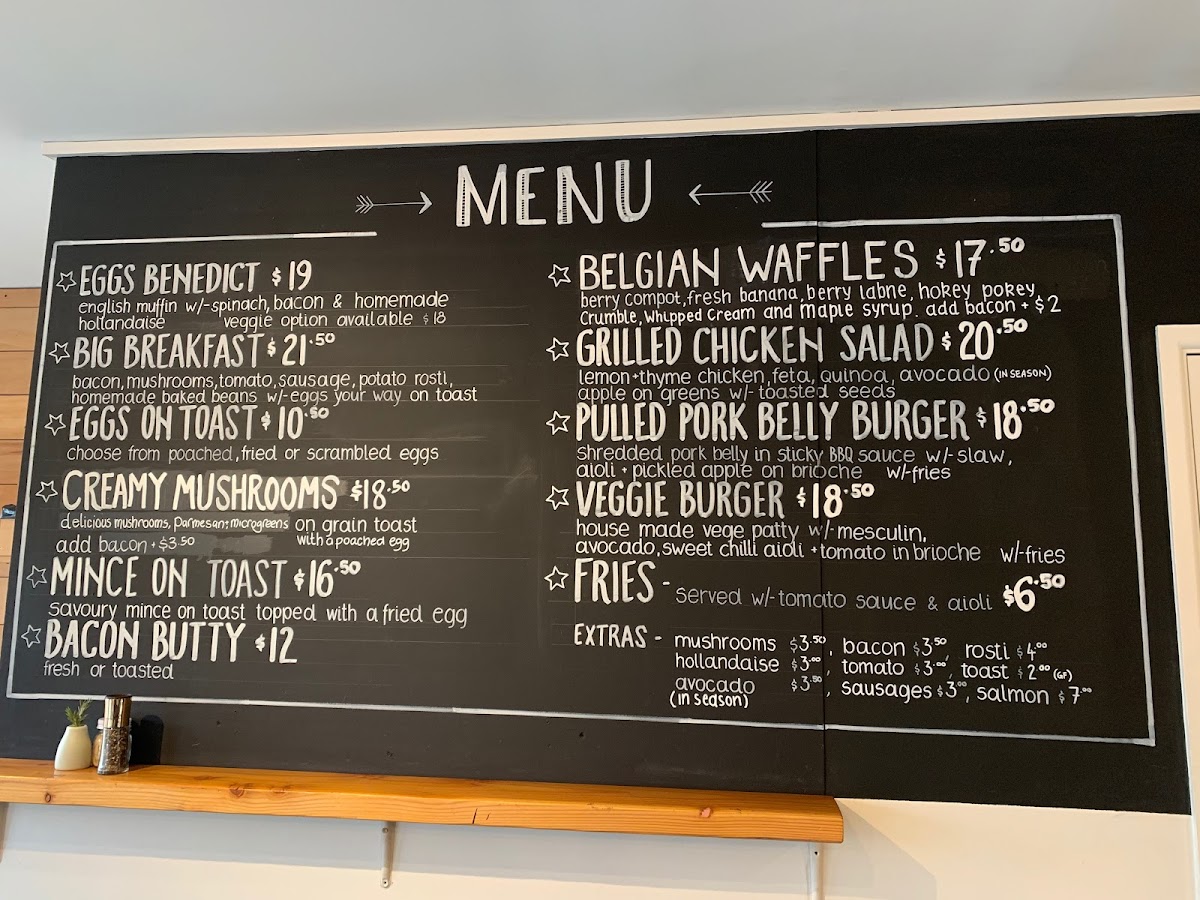 MENU
EGGS BENEDICT $19
english muffin w/-spinach, bacon & homemade
hollandaise veggie option available $18
BIG BREAKFAST $21.50
bacon, mushrooms, tomato, sausage, potato rosti,
homemade baked beans w/-eggs your way on toast
EGGS ON TOAST $10.50
choose from poached, fried or scrambled eggs
CREAMY MUSHROOMS $18.50
delicious mushrooms, parmesan + microgreens on grain toast
add bacon + $3.50 with a poached egg
MINCE ON TOAST $16.50
savoury mince on toast topped with a fried egg
BACON BUTTY $12
fresh or toasted
BELGIAN WAFFLES $17.50
berry compot, fresh banana, berry labne, hokey pokey
Crumble, Whipped Cream and maple syrup. add bacon + $2
GRILLED CHICKEN SALAD $20.50
lemon+thyme chicken, feta, quinoa, avocado (IN SEASON)
apple on greens w/- toasted seeds
PULLED PORK BELLY BURGER $18.50
shredded pork belly in sticky BBQ sauce w/-slaw,
aioli + pickled apple on brioche w/-fries
VEGGIE BURGER $18.50
house made vege patty w/-mesculin,
avocado, sweet chilli aioli + tomato in brioche w/-fries
FRIES - served w/-tomato sauce & aioli $6.50
EXTRAS - mushrooms $3.50, bacon $3.50 rosti $4.00
hollandaise $3.00, tomato $3.00, toast $2.00 (GF)
avocado $3.50, sausages $3.00, salmon $7.00
(in season)